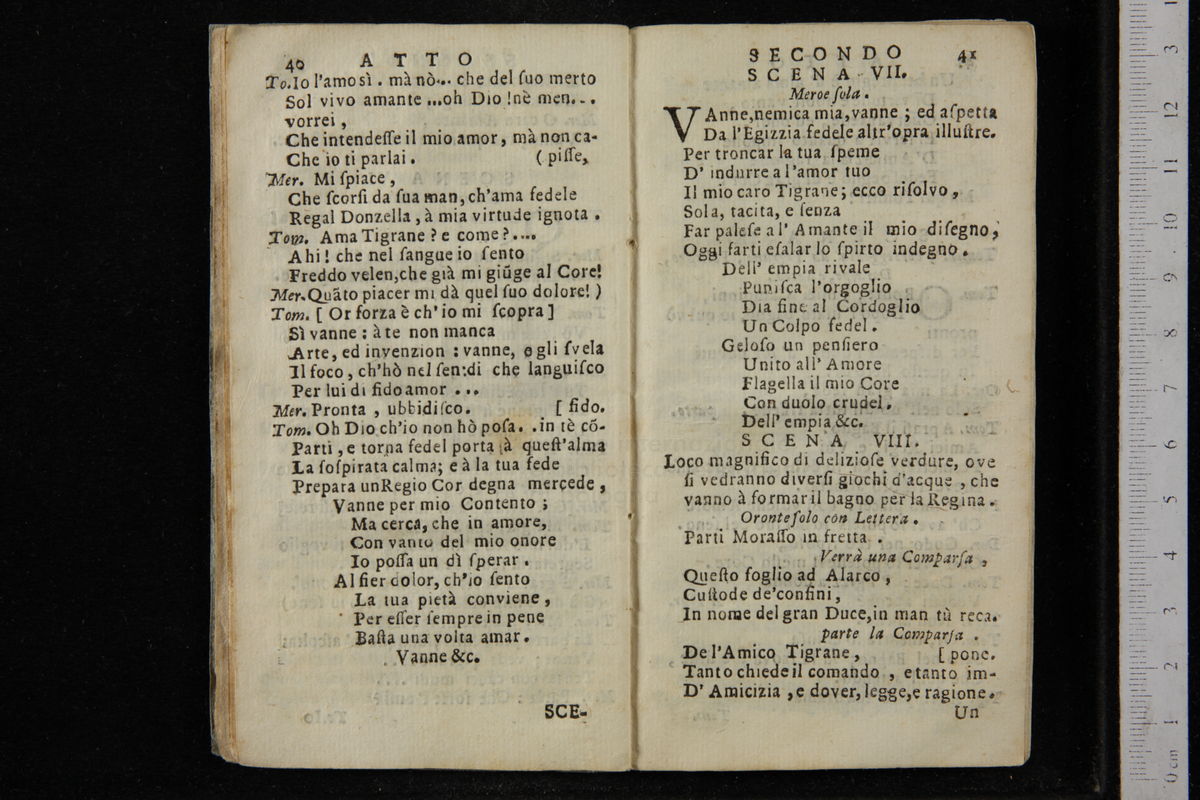 40 ATTO
To. Io l'amo sì. mà nò... che del ſuo merto
Sol vivo amante ...oh Dio! nè men...
vorrei,
Che intendeſſe il mio amor, mà non ca-
Che io ti parlai. (piſſe,
Mer. Mi ſpiace,
Che ſcorſi da ſua man, ch'ama fedele
Regal Donzella, à mia virtude ignota.
Tom. Ama Tigrane? e come?....
Ahi! che nel ſangue io ſento
Freddo velen, che già mi giũge al Core!
Mer. Quãto piacer mi dà quel ſuo dolore!)
Tom. [Or forza è ch'io mi ſcopra]
Sì vanne: à te non manca
Arte, ed invenzion: vanne, e gli ſvela
Il foco, ch'hò nel ſen: di che languiſco
Per lui di fido amor ...
Mer. Pronta, ubbidiſco. [fido.
Tom. Oh Dio ch'io non hò poſa. .in tè cõ-
Parti, e torna fedel porta à queſt'alma
La ſoſpirata calma; e à la tua fede
Prepara un Regio Cor degna mercede,
Vanne per mio Contento;
Ma cerca, che in amore,
Con vanto del mio onore
Io poſſa un dì ſperar.
Al fier dolor, ch'io ſento
La tua pietà conviene,
Per eſſer ſempre in pene
Baſta una volta amar.
Vanne &c.
SCE-
SECONDO 41
SCENA VII.
Meroe ſola.
VAnne, nemica mia, vanne; ed aſpetta
Da l'Egizzia fedele altr'opra illuſtre.
Per troncar la tua ſpeme
D' indurre a l'amor tuo
Il mio caro Tigrane; ecco riſolvo,
Sola, tacita, e ſenza
Far paleſe al' Amante il mio diſegno,
Oggi farti eſalar lo ſpirto indegno.
Dell' empia rivale
Puniſca l'orgoglio
Dia fine al Cordoglio
Un Colpo fedel.
Geloſo un penſiero
Unito all' Amore
Flagella il mio Core
Con duolo crudel.
Dell' empia &c.
SCENA VIII.
Loco magnifico di delizioſe verdure, ove
ſi vedranno diverſi giochi d'acque, che
vanno à formar il bagno per la Regina.
Oronte ſolo con Lettera.
Parti Moraſſo in fretta.
Verrà una Comparſa,
Queſto foglio ad Alarco,
Cuſtode de' confini,
In nome del gran Duce, in man tù reca.
parte la Comparſa.
De l'Amico Tigrane, [pone.
Tanto chiede il comando, e tanto im-
D' Amicizia, e dover, legge, e ragione.
Un